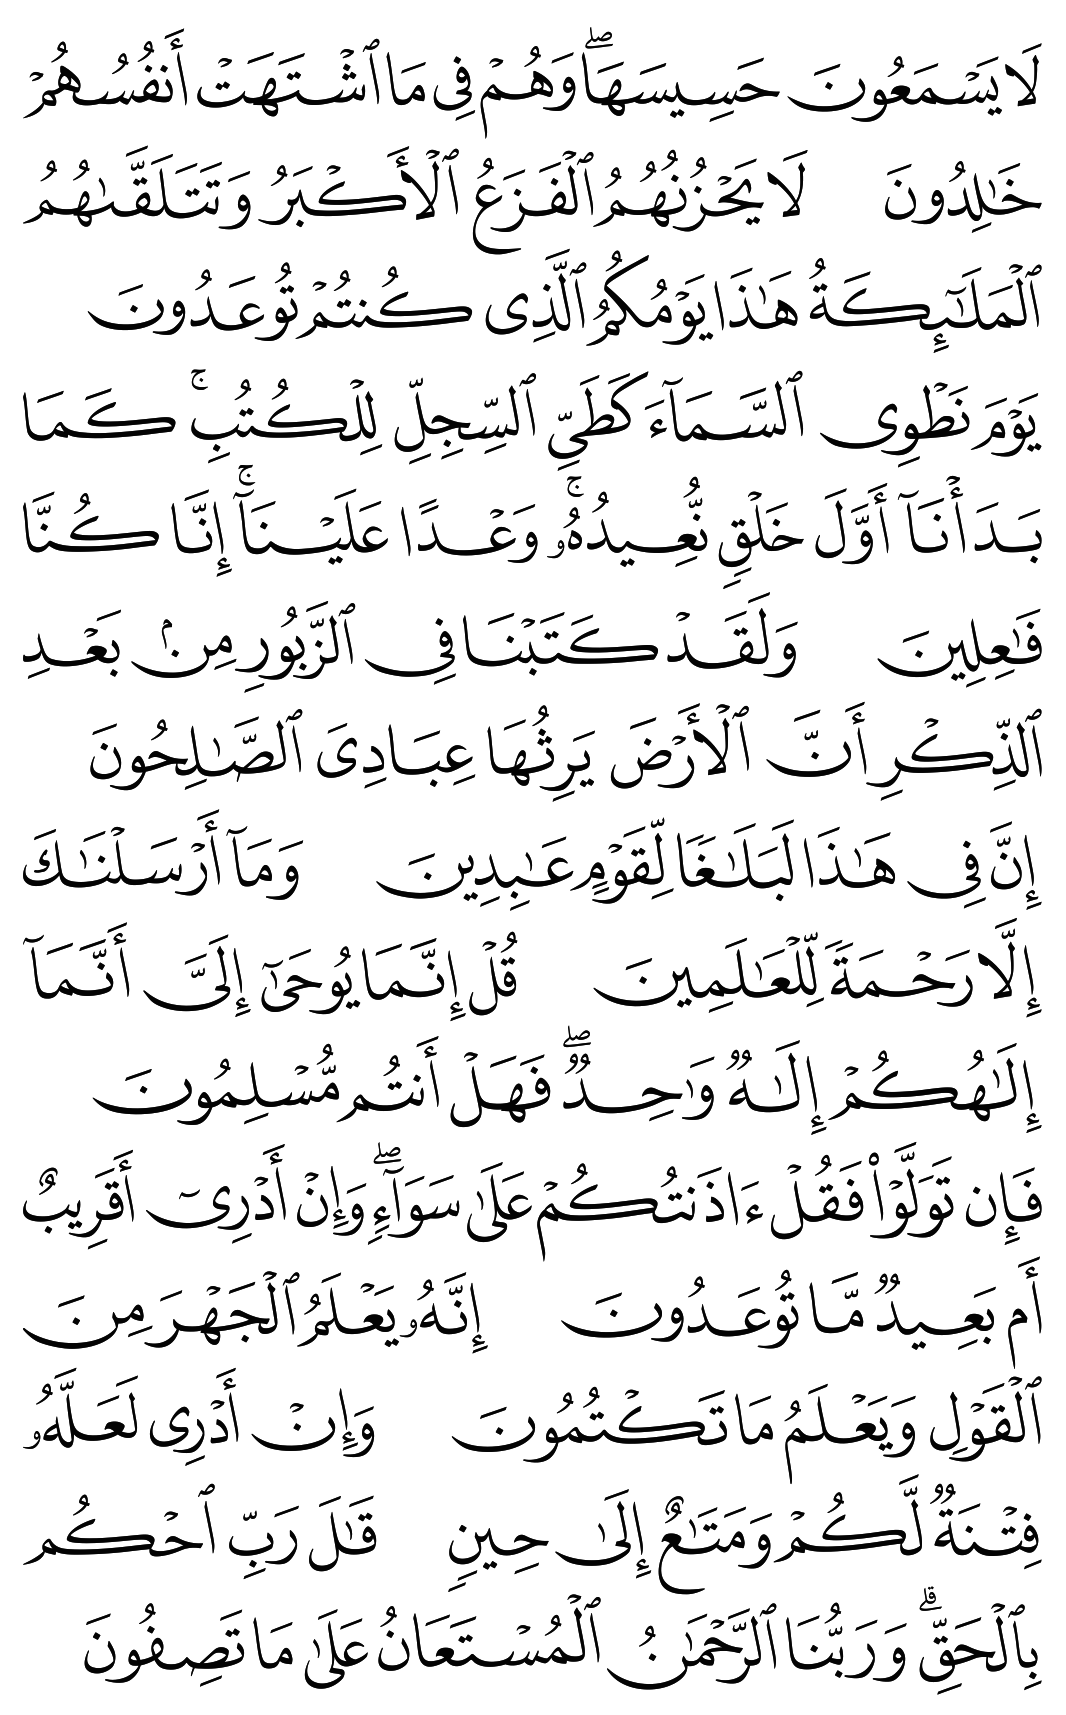 لَا يَسۡمَعُونَ حَسِيسَهَاۖ وَهُمۡ فِي مَا ٱشۡتَهَتۡ أَنفُسُهُمۡ
خَٰلِدُونَ لَا يَحۡزُنُهُمُ ٱلۡفَزَعُ ٱلۡأَكۡبَرُ وَتَتَلَقَّىٰهُمُ
ٱلۡمَلَٰٓئِكَةُ هَٰذَا يَوۡمُكُمُ ٱلَّذِي كُنتُمۡ تُوعَدُونَ
يَوۡمَ نَطۡوِي ٱلسَّمَآءَ كَطَيِّ ٱلسِّجِلِّ لِلۡكُتُبِۚ كَمَا
بَدَأۡنَآ أَوَّلَ خَلۡقٖ نُّعِيدُهُۥۚ وَعۡدًا عَلَيۡنَآۚ إِنَّا كُنَّا
فَٰعِلِينَ وَلَقَدۡ كَتَبۡنَا فِي ٱلزَّبُورِ مِنۢ بَعۡدِ
ٱلذِّكۡرِ أَنَّ ٱلۡأَرۡضَ يَرِثُهَا عِبَادِيَ ٱلصَّٰلِحُونَ
إِنَّ فِي هَٰذَا لَبَلَٰغٗا لِّقَوۡمٍ عَٰبِدِينَ وَمَآ أَرۡسَلۡنَٰكَ
إِلَّا رَحۡمَةٗ لِّلۡعَٰلَمِينَ قُلۡ إِنَّمَا يُوحَىٰٓ إِلَيَّ أَنَّمَآ
إِلَٰهُكُمۡ إِلَٰهٞ وَٰحِدٞۖ فَهَلۡ أَنتُم مُّسۡلِمُونَ
فَإِن تَوَلَّوۡاْ فَقُلۡ ءَاذَنتُكُمۡ عَلَىٰ سَوَآءٖۖ وَإِنۡ أَدۡرِيٓ أَقَرِيبٌ
أَم بَعِيدٞ مَّا تُوعَدُونَ إِنَّهُۥ يَعۡلَمُ ٱلۡجَهۡرَ مِنَ
ٱلۡقَوۡلِ وَيَعۡلَمُ مَا تَكۡتُمُونَ وَإِنۡ أَدۡرِي لَعَلَّهُۥ
فِتۡنَةٞ لَّكُمۡ وَمَتَٰعٌ إِلَىٰ حِينٖ قَٰلَ رَبِّ ٱحۡكُم
بِٱلۡحَقِّۗ وَرَبُّنَا ٱلرَّحۡمَٰنُ ٱلۡمُسۡتَعَانُ عَلَىٰ مَا تَصِفُونَ